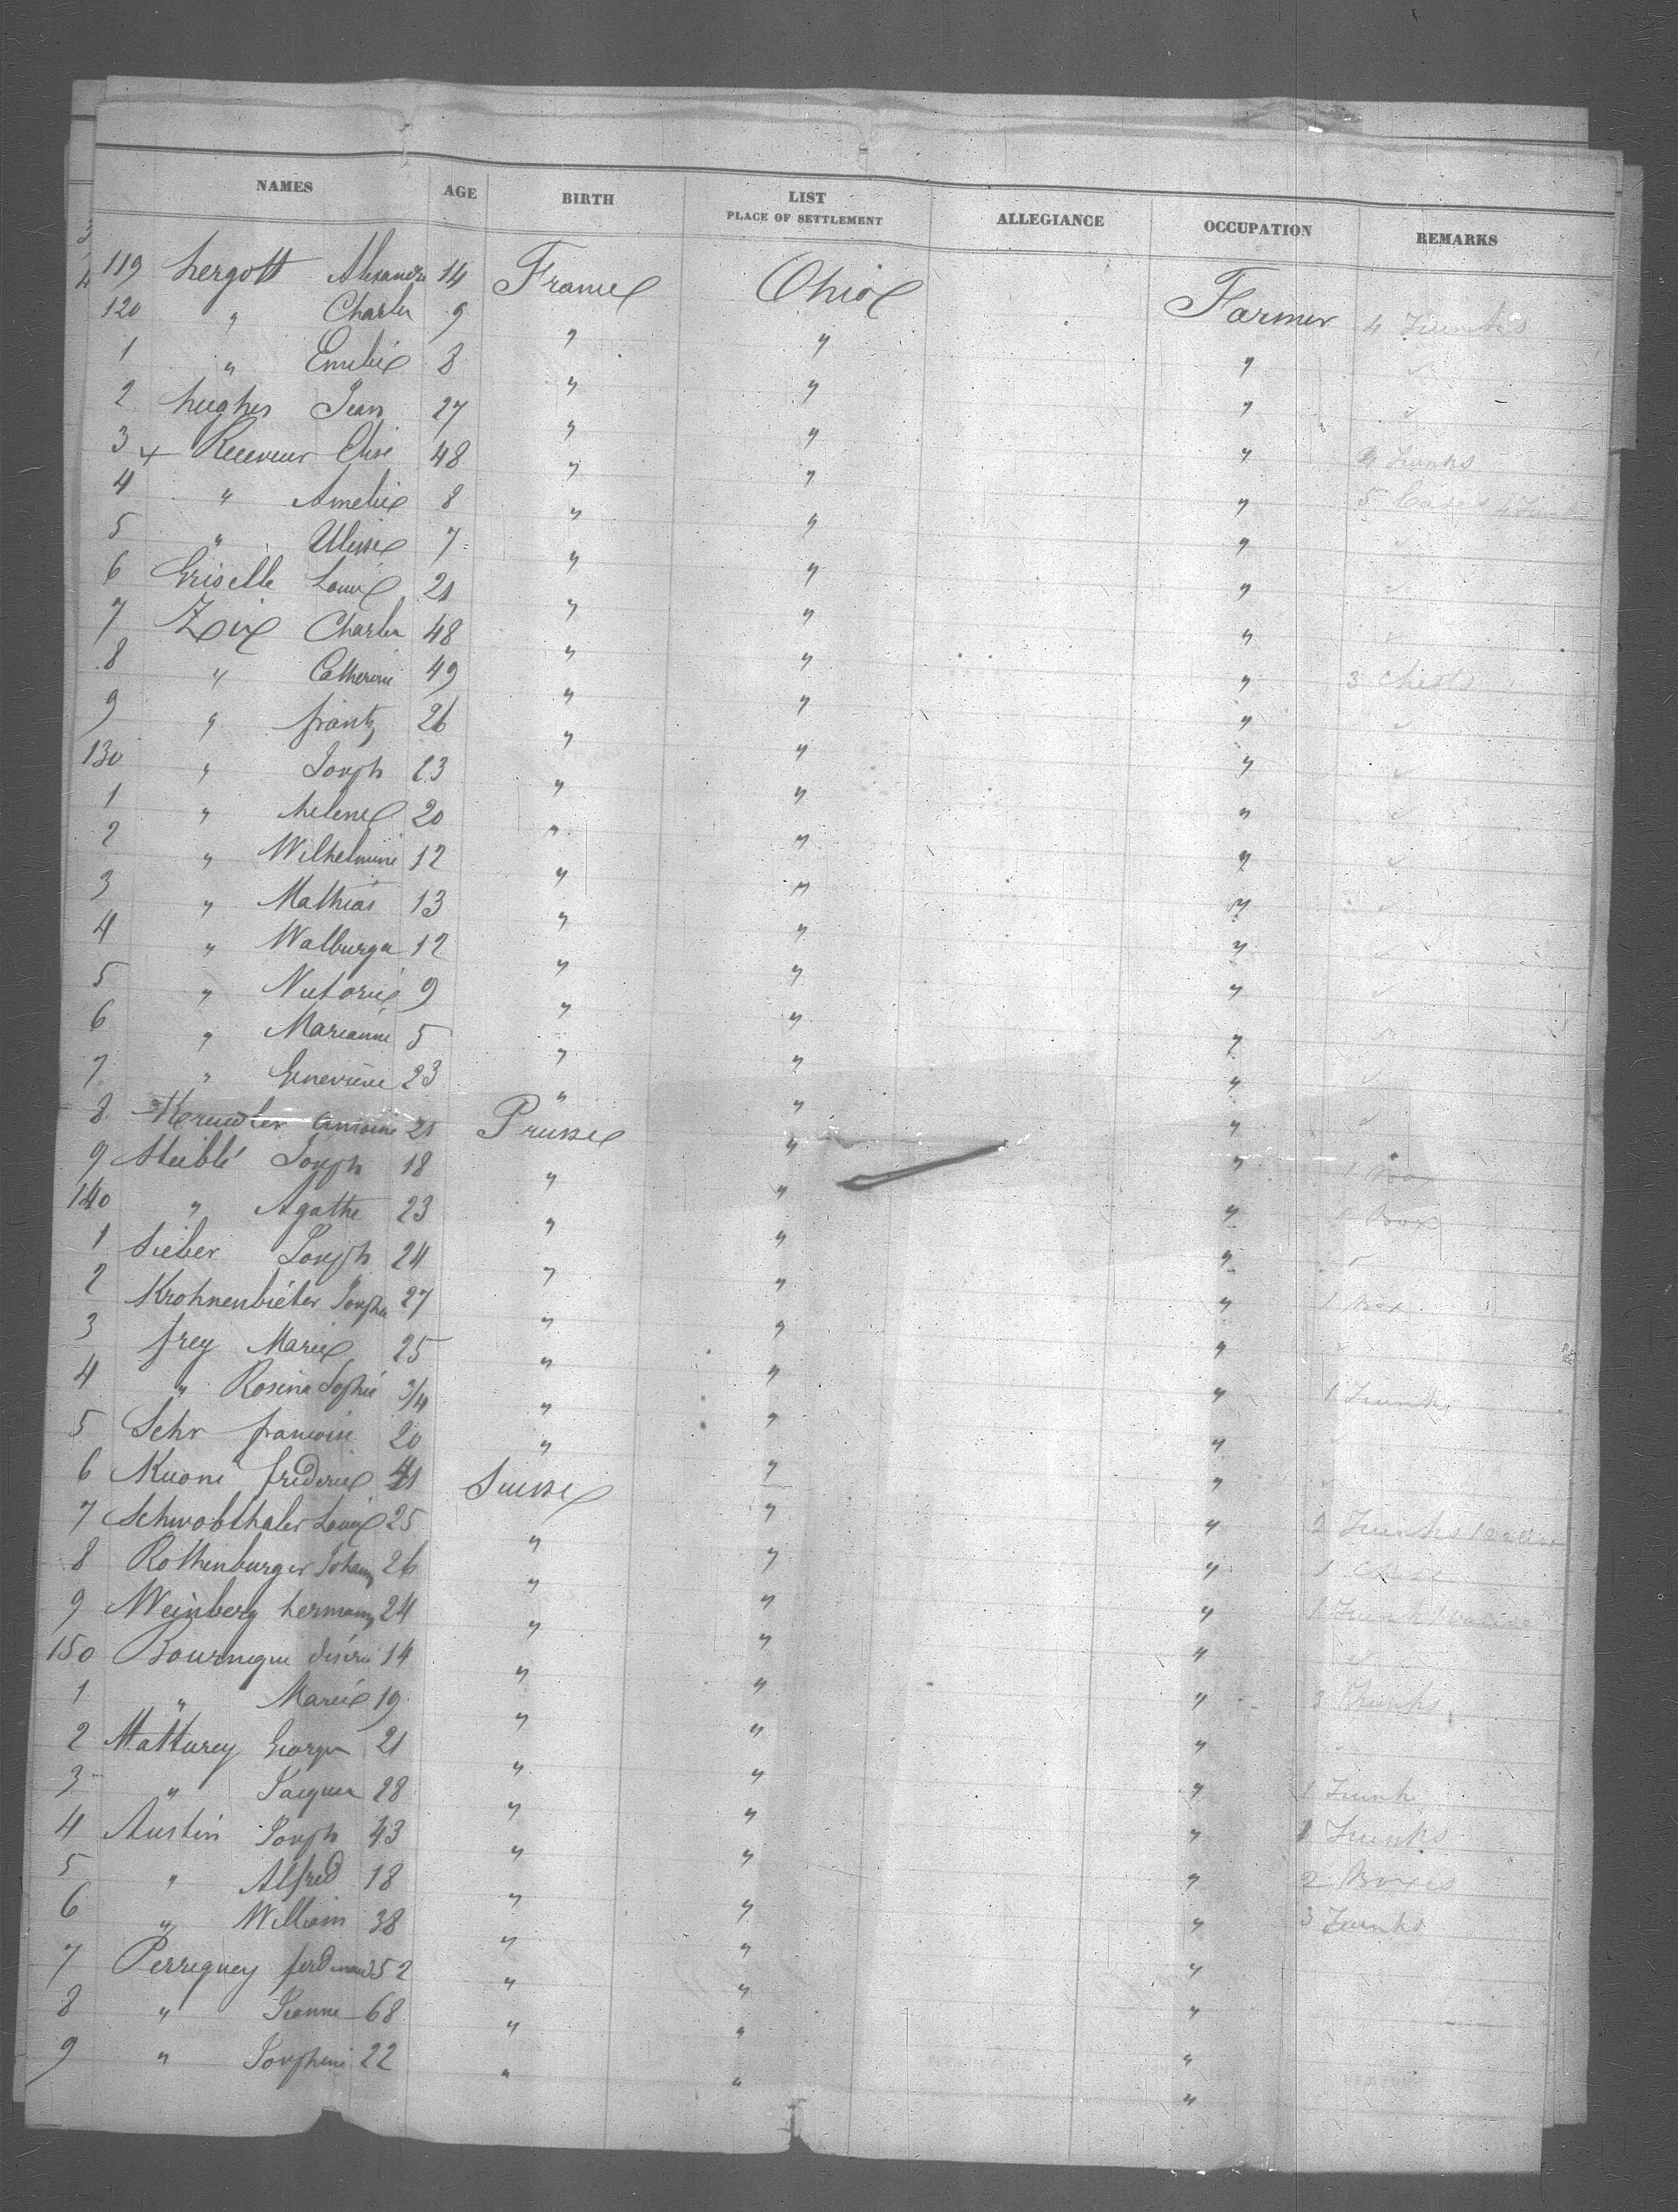 NAMES AGE BIRTH LIST PLACE OF SETTLEMENT ALLEGIANCE OCCUPATION REMARKS
119 hergott Alexandre 14 France Ohio Farmer 4 Trunks
120 " Charles 9 " " "
1 " Emelie 8 " " "
2 hughes Jean 27 " " " Trunks
3 + Receveur Elise 48 " " " 5 Cases
4 " Amelie 8 " " "
5 " Ulisse 7 " " "
6 Griselle Louis 21 " " "
7 Zix Charles 48 " " " 3 Chests
8 " Catherine 49 " " "
9 " frantz 26 " " "
130 " Joseph 23 " " "
1 " helene 20 " " "
2 " Wilhelmine 12 " " "
3 " Mathias 13 " " "
4 " Walburga 12 " " "
5 " Victorie 9 " " "
6 " Marianne 5 " " "
7 " Genevieve 23 " " "
8 Antoine 21 Prusse " " 1 Box
9 Steiblé Joseph 18 " " " 1 Box
140 " Agathe 23 " " "
1 Sieber Joseph 24 " " " 1 Box
2 Krohnenbieter 27 " " "
3 frey Marie 25 " " " 1 Trunk
4 " Rosina Sophie 3/4 " " "
5 Sehr francoise 20 " " "
6 Kuoni frederic Suisse " " 2 Trunks
7 Schwobthaler Louis 25 " " " 1
8 Rothenburger Johann 26 " " " 1 Trunk
9 Weinberg hermann 24 " " "
150 Bournique 14 " " " Trunks
1 " Marie 19 " " "
2 Matturey George 21 " " " 1 Trunk
3 " Jacques 28 " " " Trunks
4 Austin Joseph 43 " " " 2 Boxes
5 " Alfred 18 " " " 3 Trunks
6 " William 38 " " "
7 Perreguey ferdinand 52 " " "
8 " Jeanne 68 " " "
9 " Josephine 22 " " "